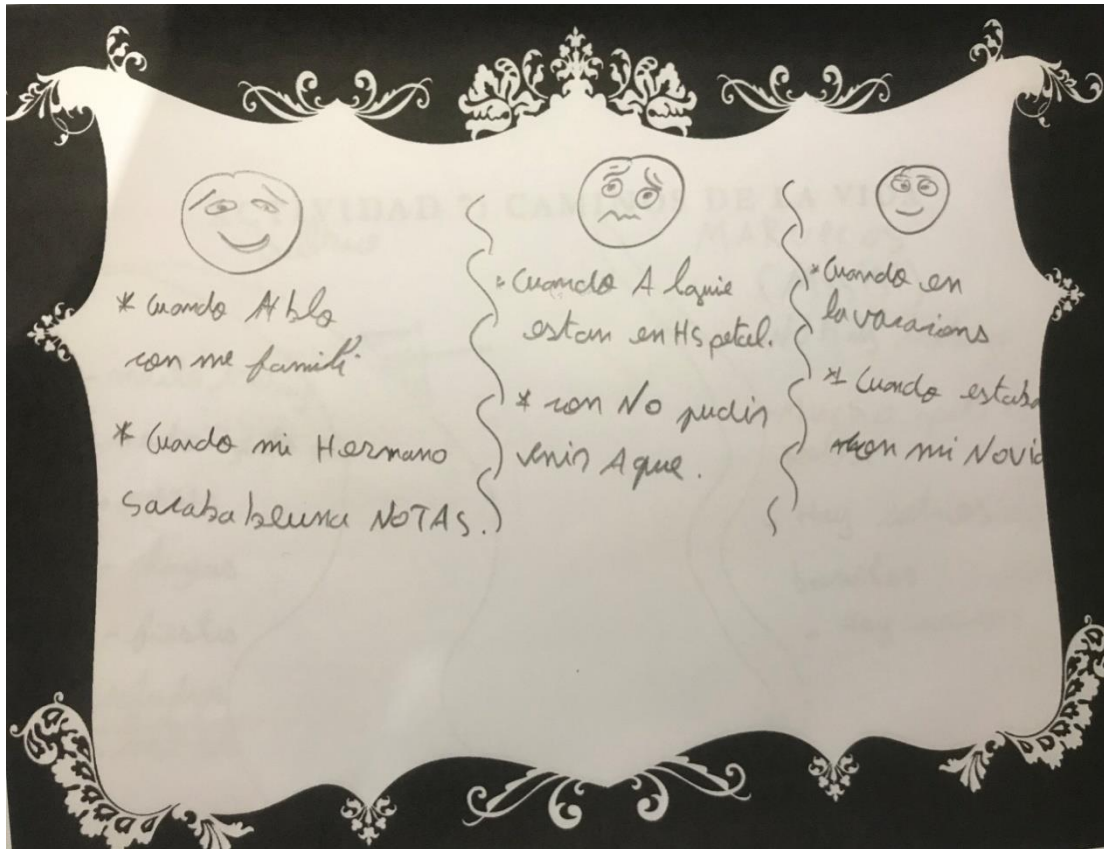 * Cuando Ablo
con me famili
* Cuando mi Hermano
Sacaba bLuna NOTAS.
* Cuando Alguie
estan en HSpetal.
* con No pudin
venir Aque.
* Cuando en
la vacacions
* Cuando estaba
con mi Novia
ACTIVIDAD 7: CAMINOS DE LA VIDA